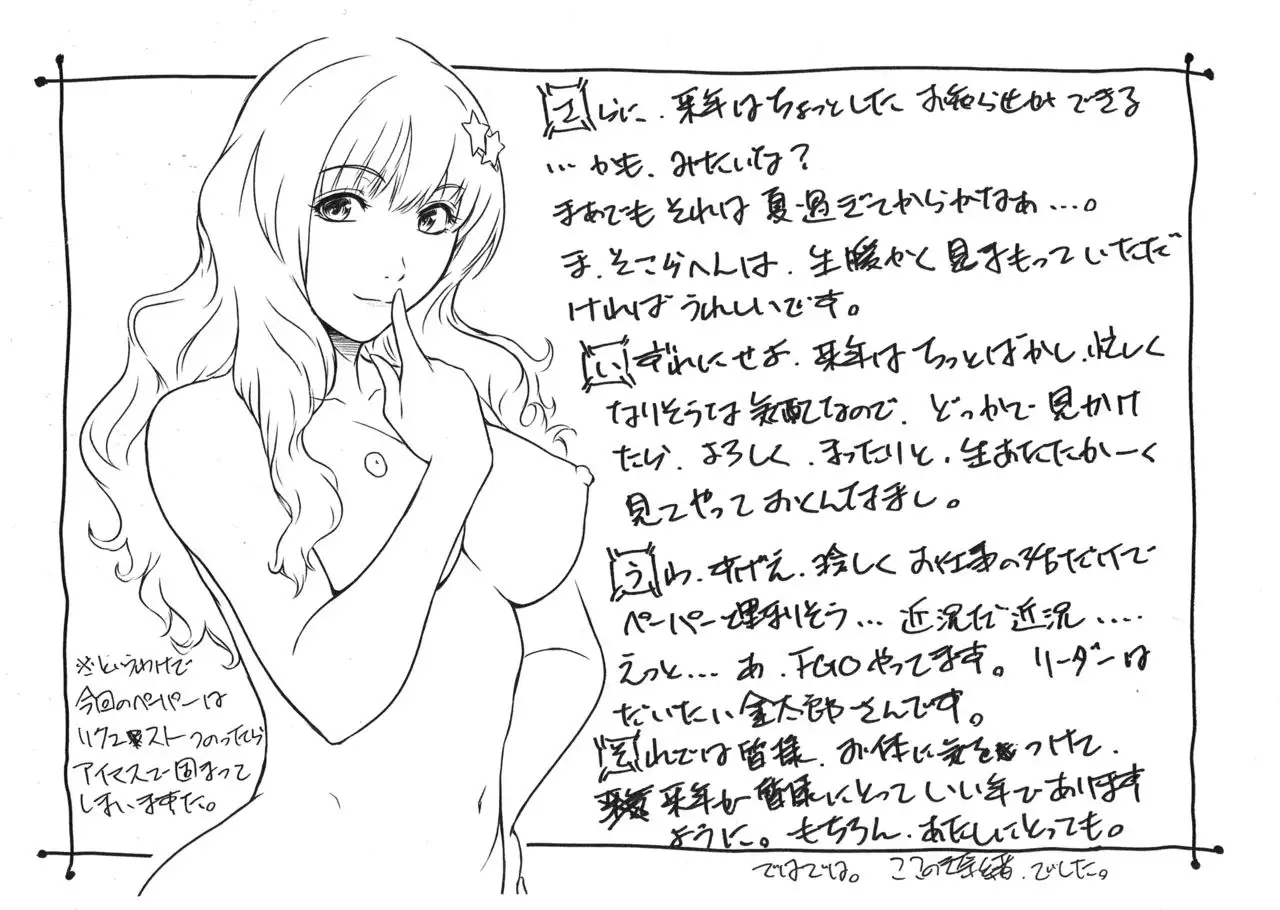 さらに、来年はちょっとしたお知らせができる
…かも、みたいな?
まあでもそれは夏過ぎてからかなぁ…。
ま、そこらへんは、生暖かく見まもっていただだ
ければうれしいです。
いずれにせよ、来年はちっとばかし、忙しく
なりそうな気配なので、どっかで見かけ
たら、よろしく、まったりと、生あたたかーく
見てやっておくんなまし。
うわ、すげえ、珍しくお仕事の話だけで
ペーパー埋まりそう…近況だ近況....
えっと…あ、FGOやってます。リーダーは
だいたい金太郎さんです。
それでは皆様、お体に気をつけて、
来年が皆様にとっていい年であります
ように。もちろん、あたしにとっても。
ではでは。ここのき奈緒、でした。
※というわけで
今回のペーパーは
リクエストつのったら
アイマスで固まって
しまいますた。